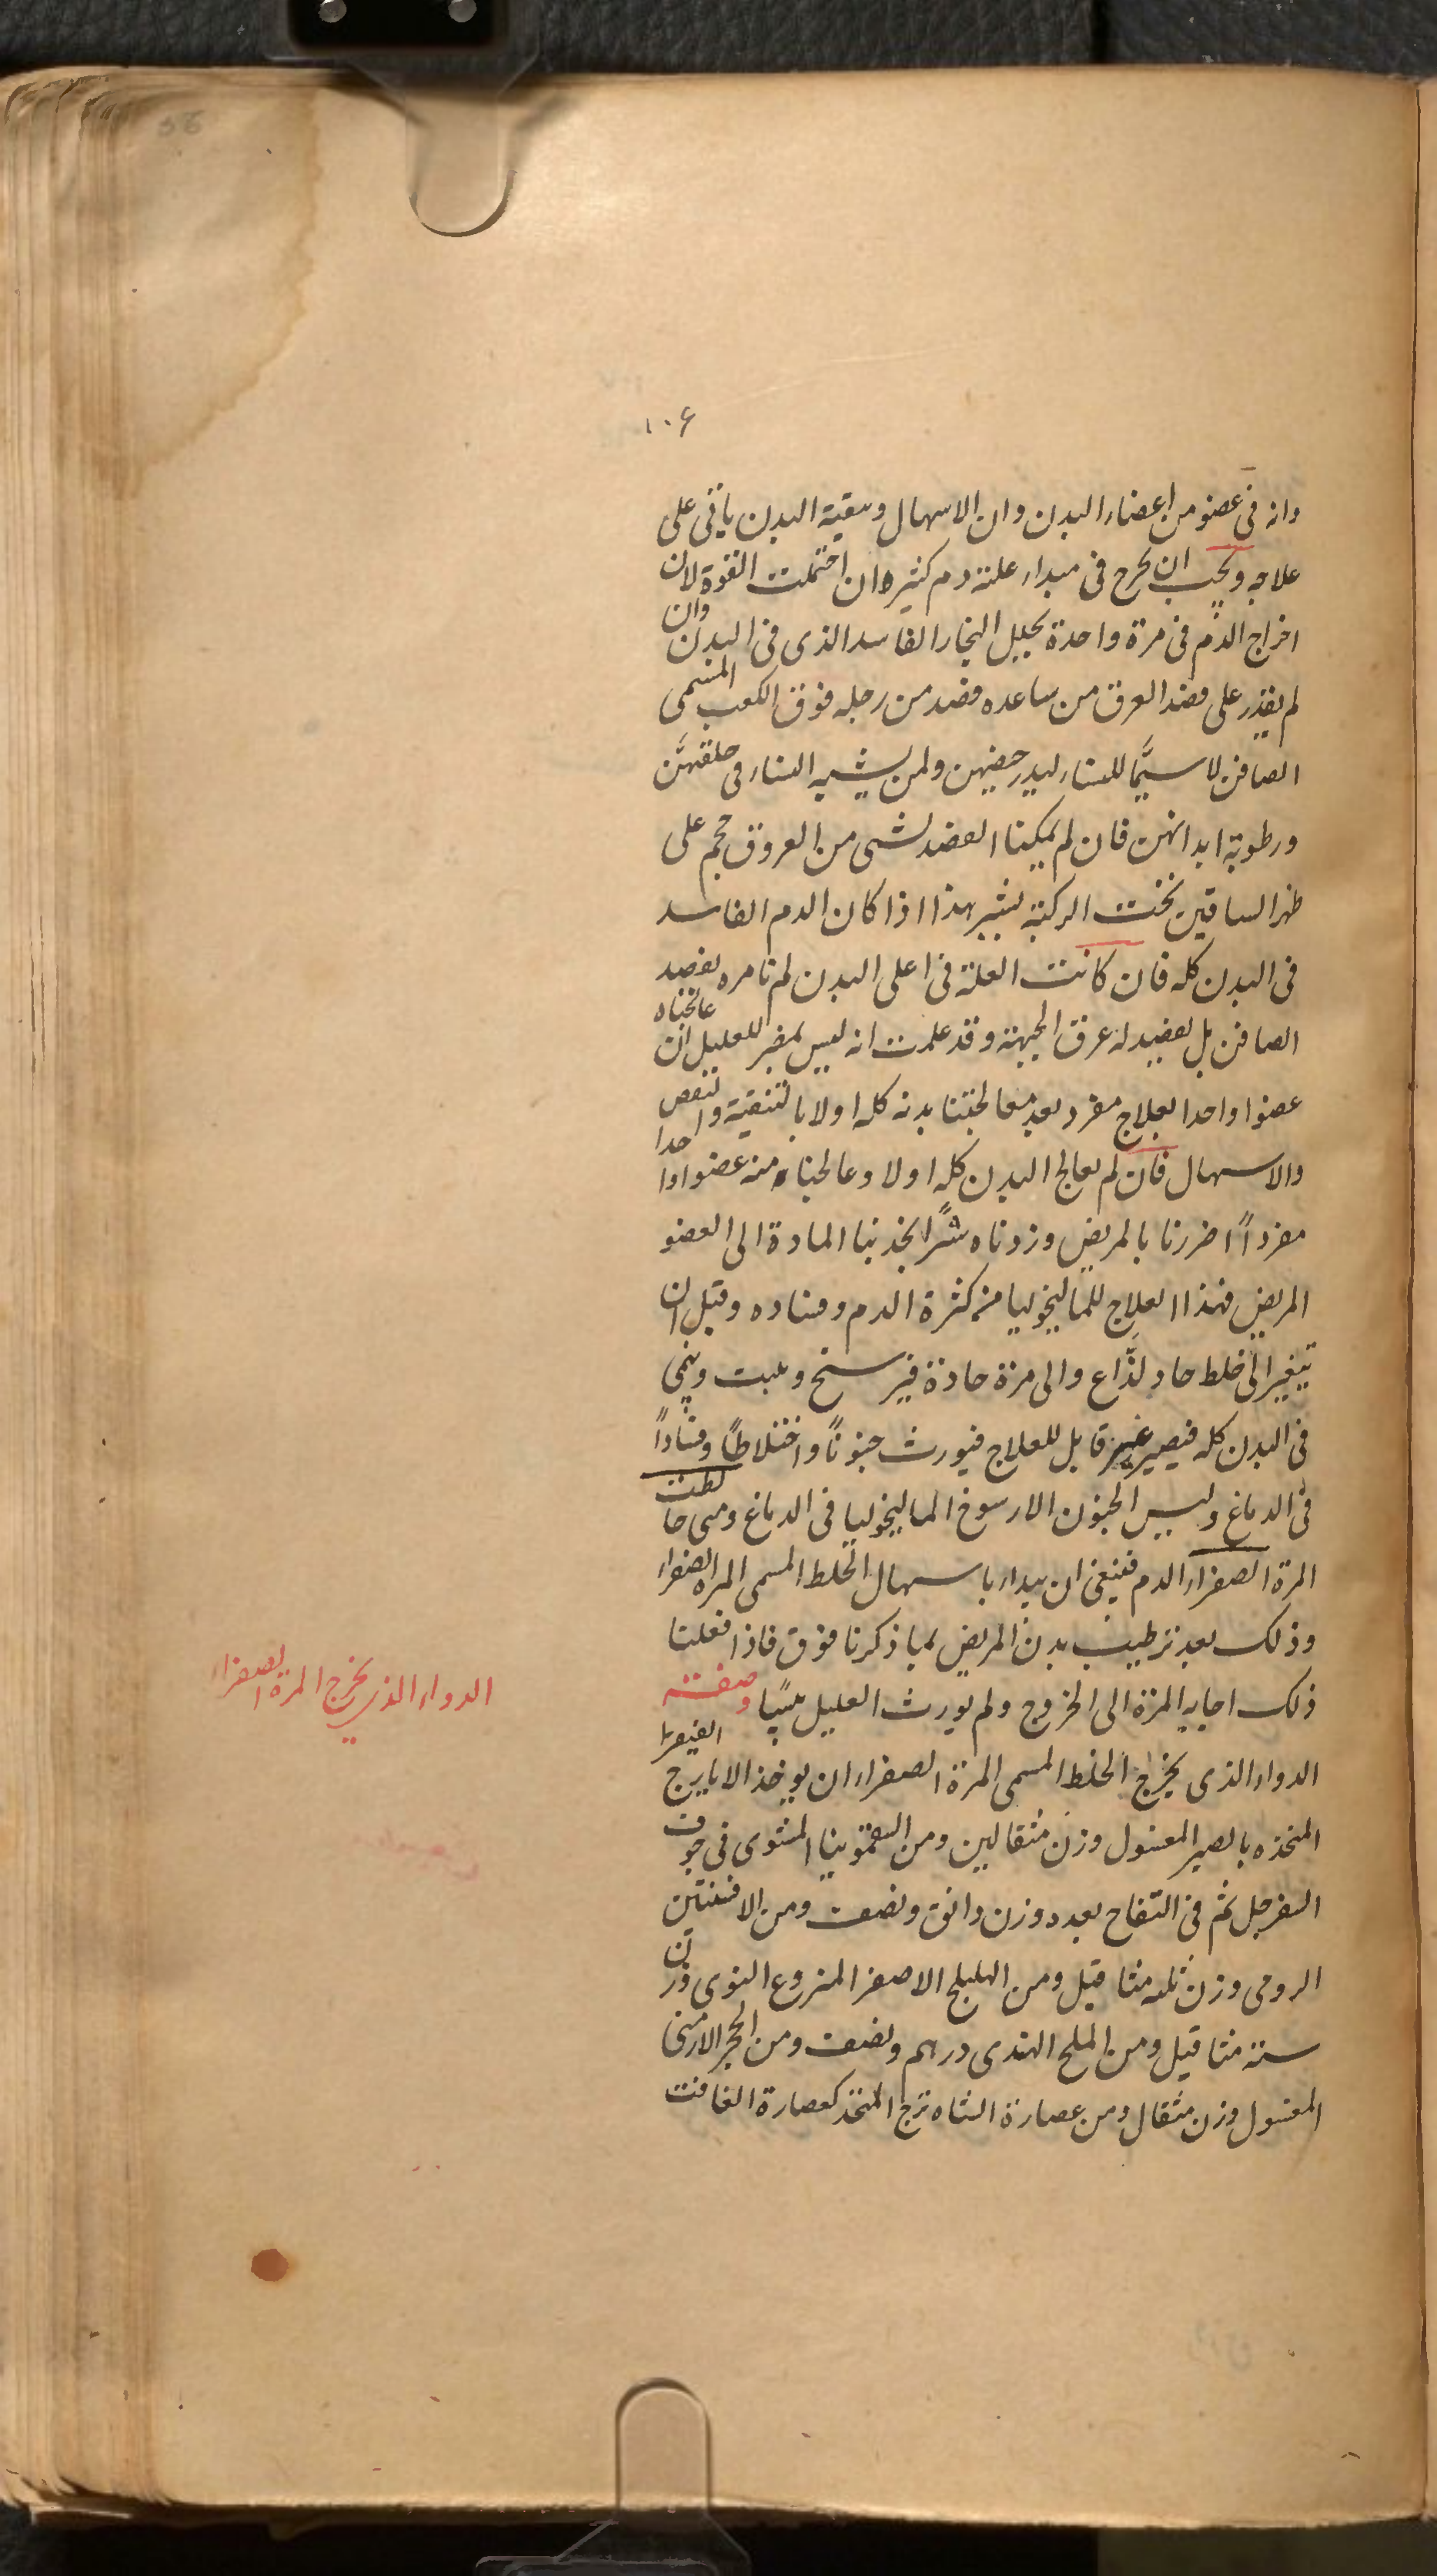 ١٠۶
وانه فى عضو من اعضاء البدن وان الاسهال وتنقية البدن ياتى على
علاجه ويجب ان يخرج فى مبداء علته دم كثير ان احتملت القوة لان
اخراج الدم فى مرة واحدة يحيل البخار الفاسد الذى فى البدن وان
لم يقدر على فصد العرق من ساعده فصد من رجله فوق الكعب المسمى
الصافن لا سيَّما للنساء ليدر حيضهن ولمن يشبه النساء فى خلقتهنَّ
ورطوبة ابدانهن فان لم يمكنا الفصد لشى من العروق حجم على
ظهر الساقين تحت الركبة بشبر هذا اذا كان الدم الفاسد
فى البدن كله فان كانت العلة فى اعلى البدن لم نامره بفصد
الصافن بل بفصد له عرق الجبهة وقد علمت انه ليس بمضر للعليل ان عالجناه
عضوا واحدا بعلاج مفرد بعد معالجتنا بدنه كله اولا بالتنقية والنفض
والاسهال فان لم يعالج البدن كله اولا وعالجناه منه عضوا واحدا
مفرداً اضررنا بالمريض وزدناه شرًّا بجذبنا المادة الى العضو
المريض فهذا العلاج للماليخوليا من كثرة الدم وفساده وقبل ان
يتغير الى خلط حاد لذَّاع والى مرة حادة فيرسخ ويثبت وينمى
فى البدن كله فيصير غير قابل للعلاج فيورث جنونًا واختلاطًا وفسادًا
فى الدماغ وليس الجنون الا رسوخ الماليخوليا فى الدماغ ومتى خالطت
المرة الصفراء الدم فينبغى ان يبداء باسهال الخلط المسمى المرة الصفراء
وذلك بعد ترطيب بدن المريض بما ذكرنا فوق فاذا فعلنا
ذلك اجابه المرة الى الخروج ولم يورث العليل يبسًا وصفته
الدواء الذى يخرج الخلط المسمى المرة الصفراء ان يوخذ الايارج الفيقرا
المتخذه بالصبر المغسول وزن مثقالين ومن السقمونيا المشوى فى جوف
السفرجل ثم فى التفاح بعده وزن دانق ونصف ومن الافسنتين
الرومى وزن ثلثه مثاقيل ومن الهليلج الاصفر المنزوع النوى وزن
ستة مثاقيل ومن الملح الهندى درهم ونصف ومن الحجر الارمنى
المغسول وزن مثقال ومن عصارة الشاه ترج المتخذ كعصارة الغافت
الدواء الذى يخرج المرة الصفراء